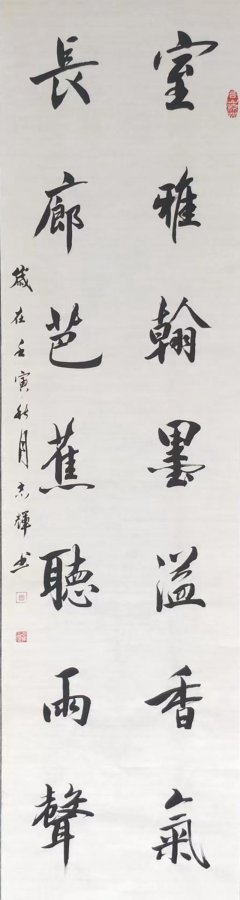 室雅翰墨溢香氣
長廊芭蕉聽雨聲
歲在壬寅秋月志輝书